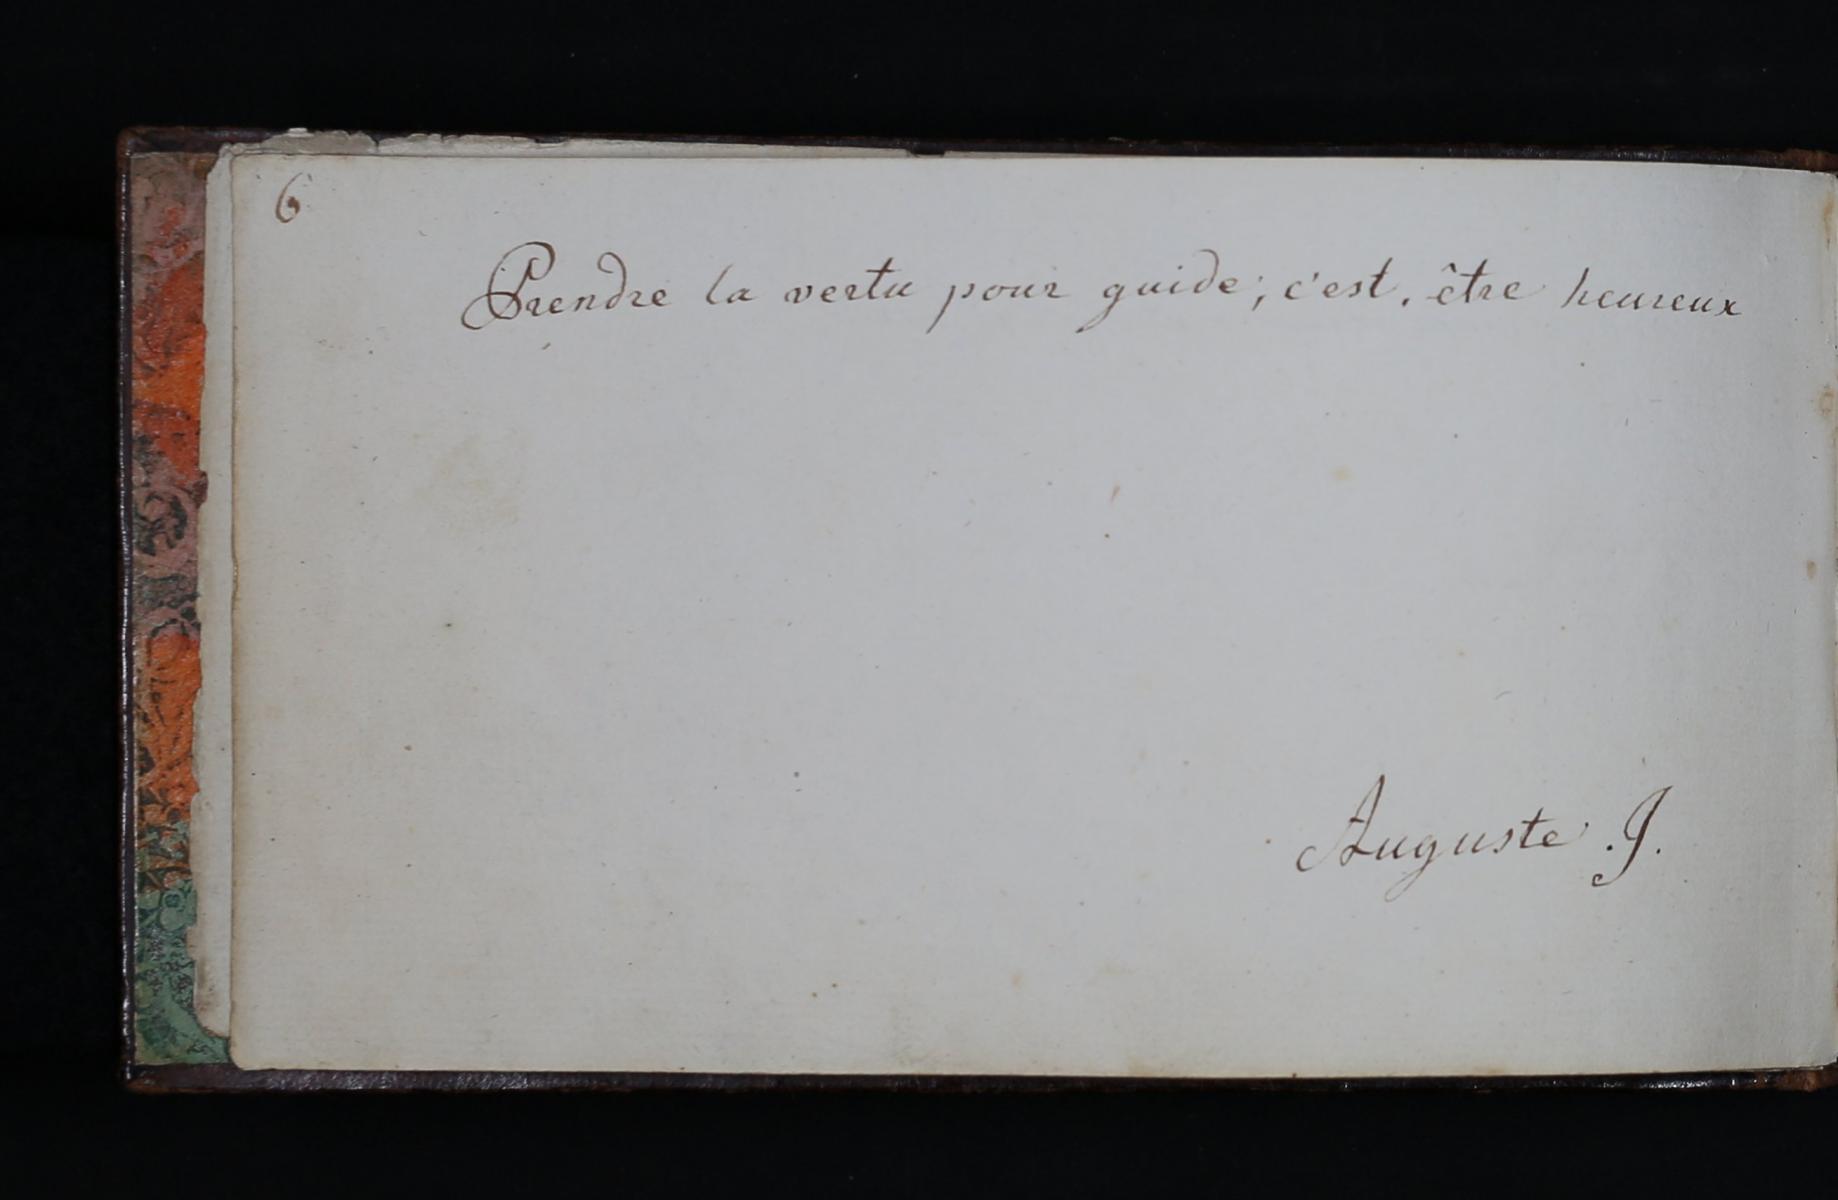 6
Prendre la vertu pour guide; c'est. être heureux
Auguste .J.